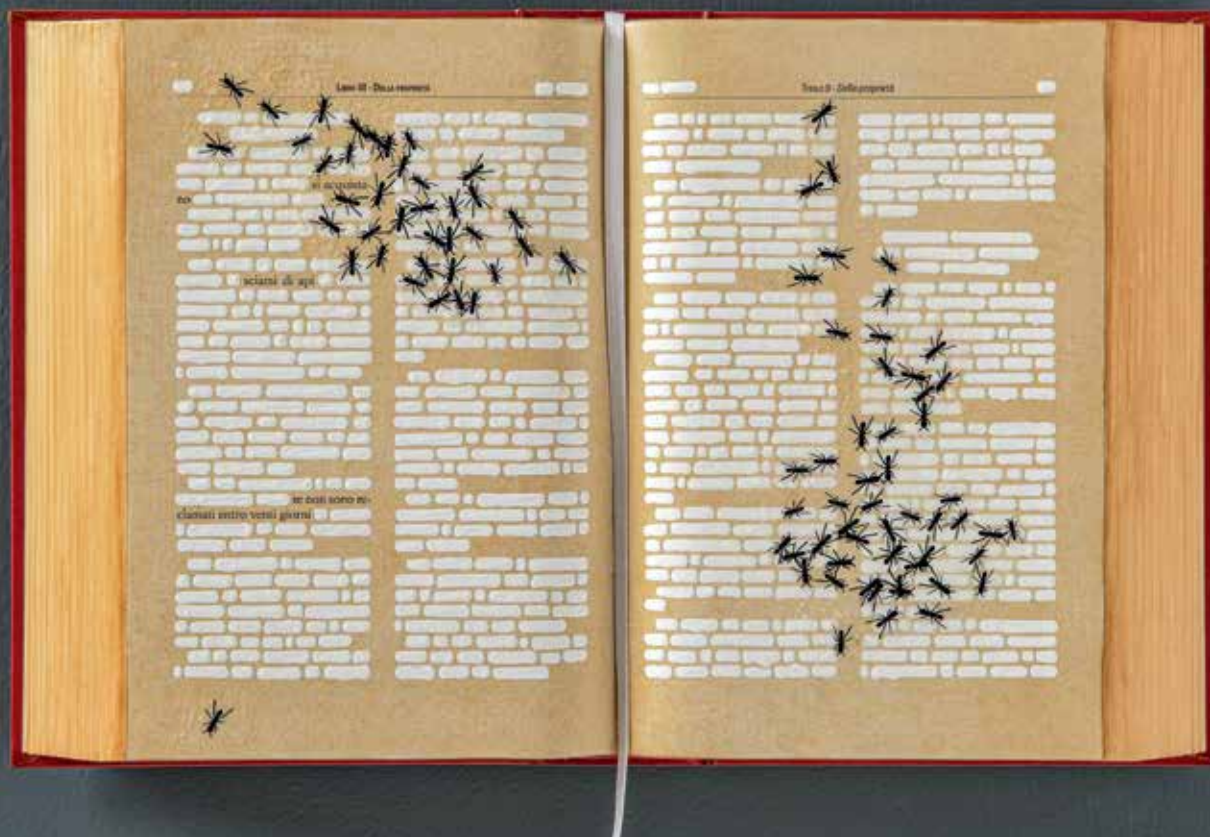 Libro III - Della proprietà
si acquista-
no
sciami di api
se non sono re-
clamati entro venti giorni
Titolo II - Della proprietà